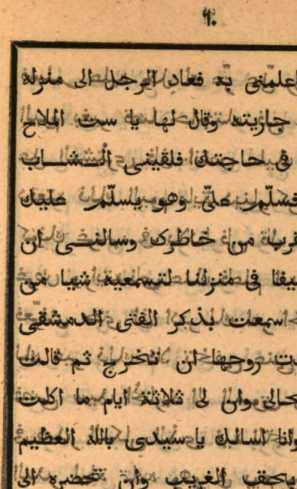 ٦٠
اعلمنى به فعاد الرجل الى منزله
جاريته وقال لها يا ست الملاح
فى حاجتك فلقينى الشـــاب
فسلّم علىّ وهو يسلّم عليك
قربه من خاطرك وسالنــى ان
يفا فى منزلنا لتسمعيه شيا من
اسمعت بذكر الفتى الدمشقى
ت روحها ان تخرج ثم قالت
حالى وان لى ثلاثة ايام ما اكلت
وانا اسالك يا سيدى بالله العظيم
بحق الغريب وان تحضره الى